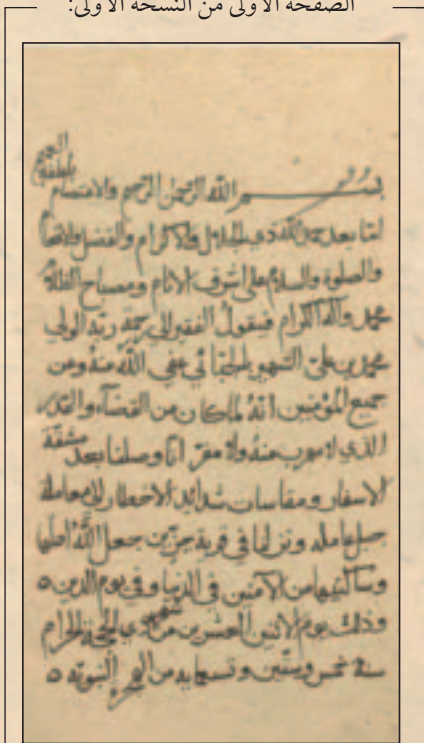 الصفحة الأولى من النسخة الأولى:
بسم الله الرحمن الرحيم والاعتصام بلطفه العميم
اما بعد حمد الله ذي الجلال والاكرام والفضل والانعام
والصلوة والسلام على اشرف الانام ومصباح الظلام
محمد وآله الكرام فيقول الفقير الى رحمة ربه الولي
محمد بن علي الشهير بالجبائي عفى الله عنه وعن
جميع المؤمنين انه لما كان من القضاء والقدر
الذي لا مهرب منه ولا مفر انا وصلنا بعد مشقة
الاسفار ومقاسات شدائد الاخطار الى معاملة
جبل عامله ونزلنا في قرية جزين جعل الله اهلها
وساكنيها من الآمنين في الدنيا وفي يوم الدين ٥
وذلك يوم الاثنين العشرين من شهر ذي الحجة الحرام
سنة خمس وستين وتسعمايه من الهجرة النبويه ٥